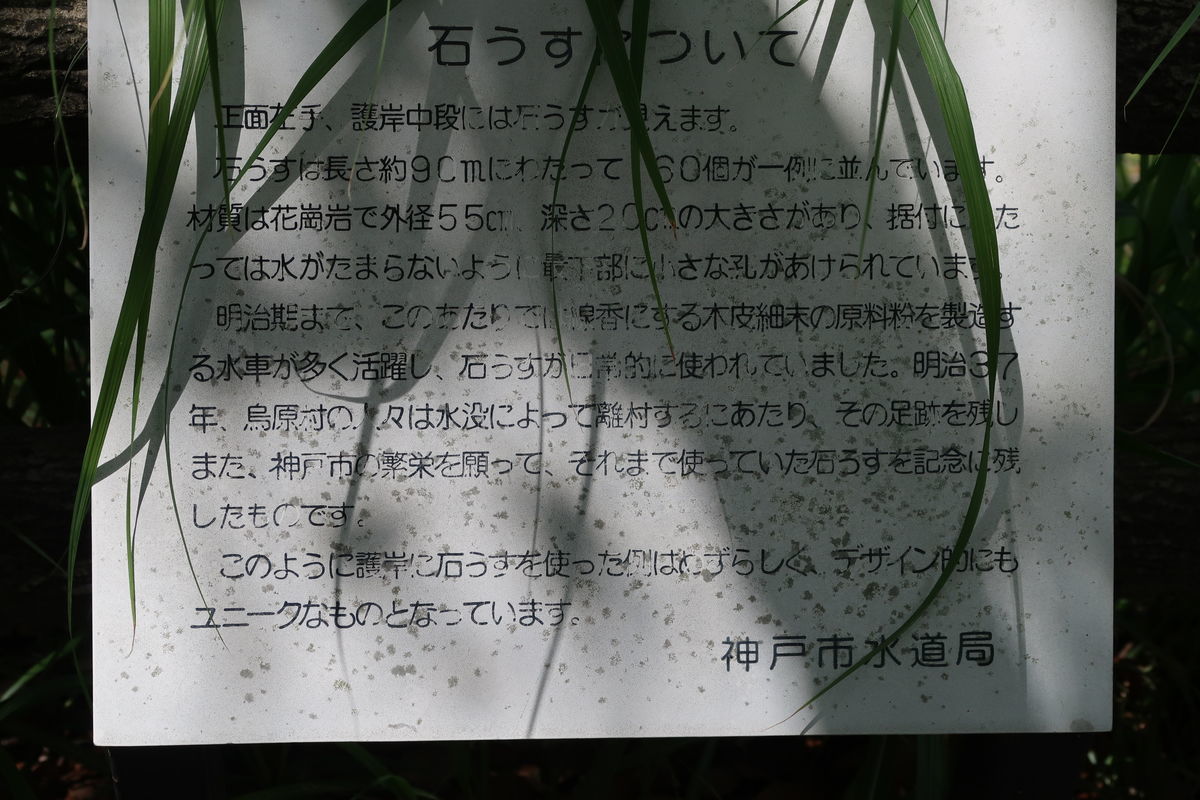 石うすについて
正面左手、護岸中段には石うすが見えます。
石うすは長さ約90mにわたって 60個が一例に並んでいます。
材質は花崗岩で外径55cm、深さ20cmの大きさがあり、据付にあた
っては水がたまらないように最下部に小さな孔があけられています。
明治期まで、このあたりでは線香にする木皮細末の原料粉を製造す
る水車が多く活躍し、石うすが日常的に使われていました。明治37
年、烏原村の人々は水没によって離村するにあたり、その足跡を残し
また、神戸市の繁栄を願って、それまで使っていた石うすを記念に残
したものです。
このように護岸に石うすを使った例はめずらしく、デザイン的にも
ユニークなものとなっています。
神戸市水道局